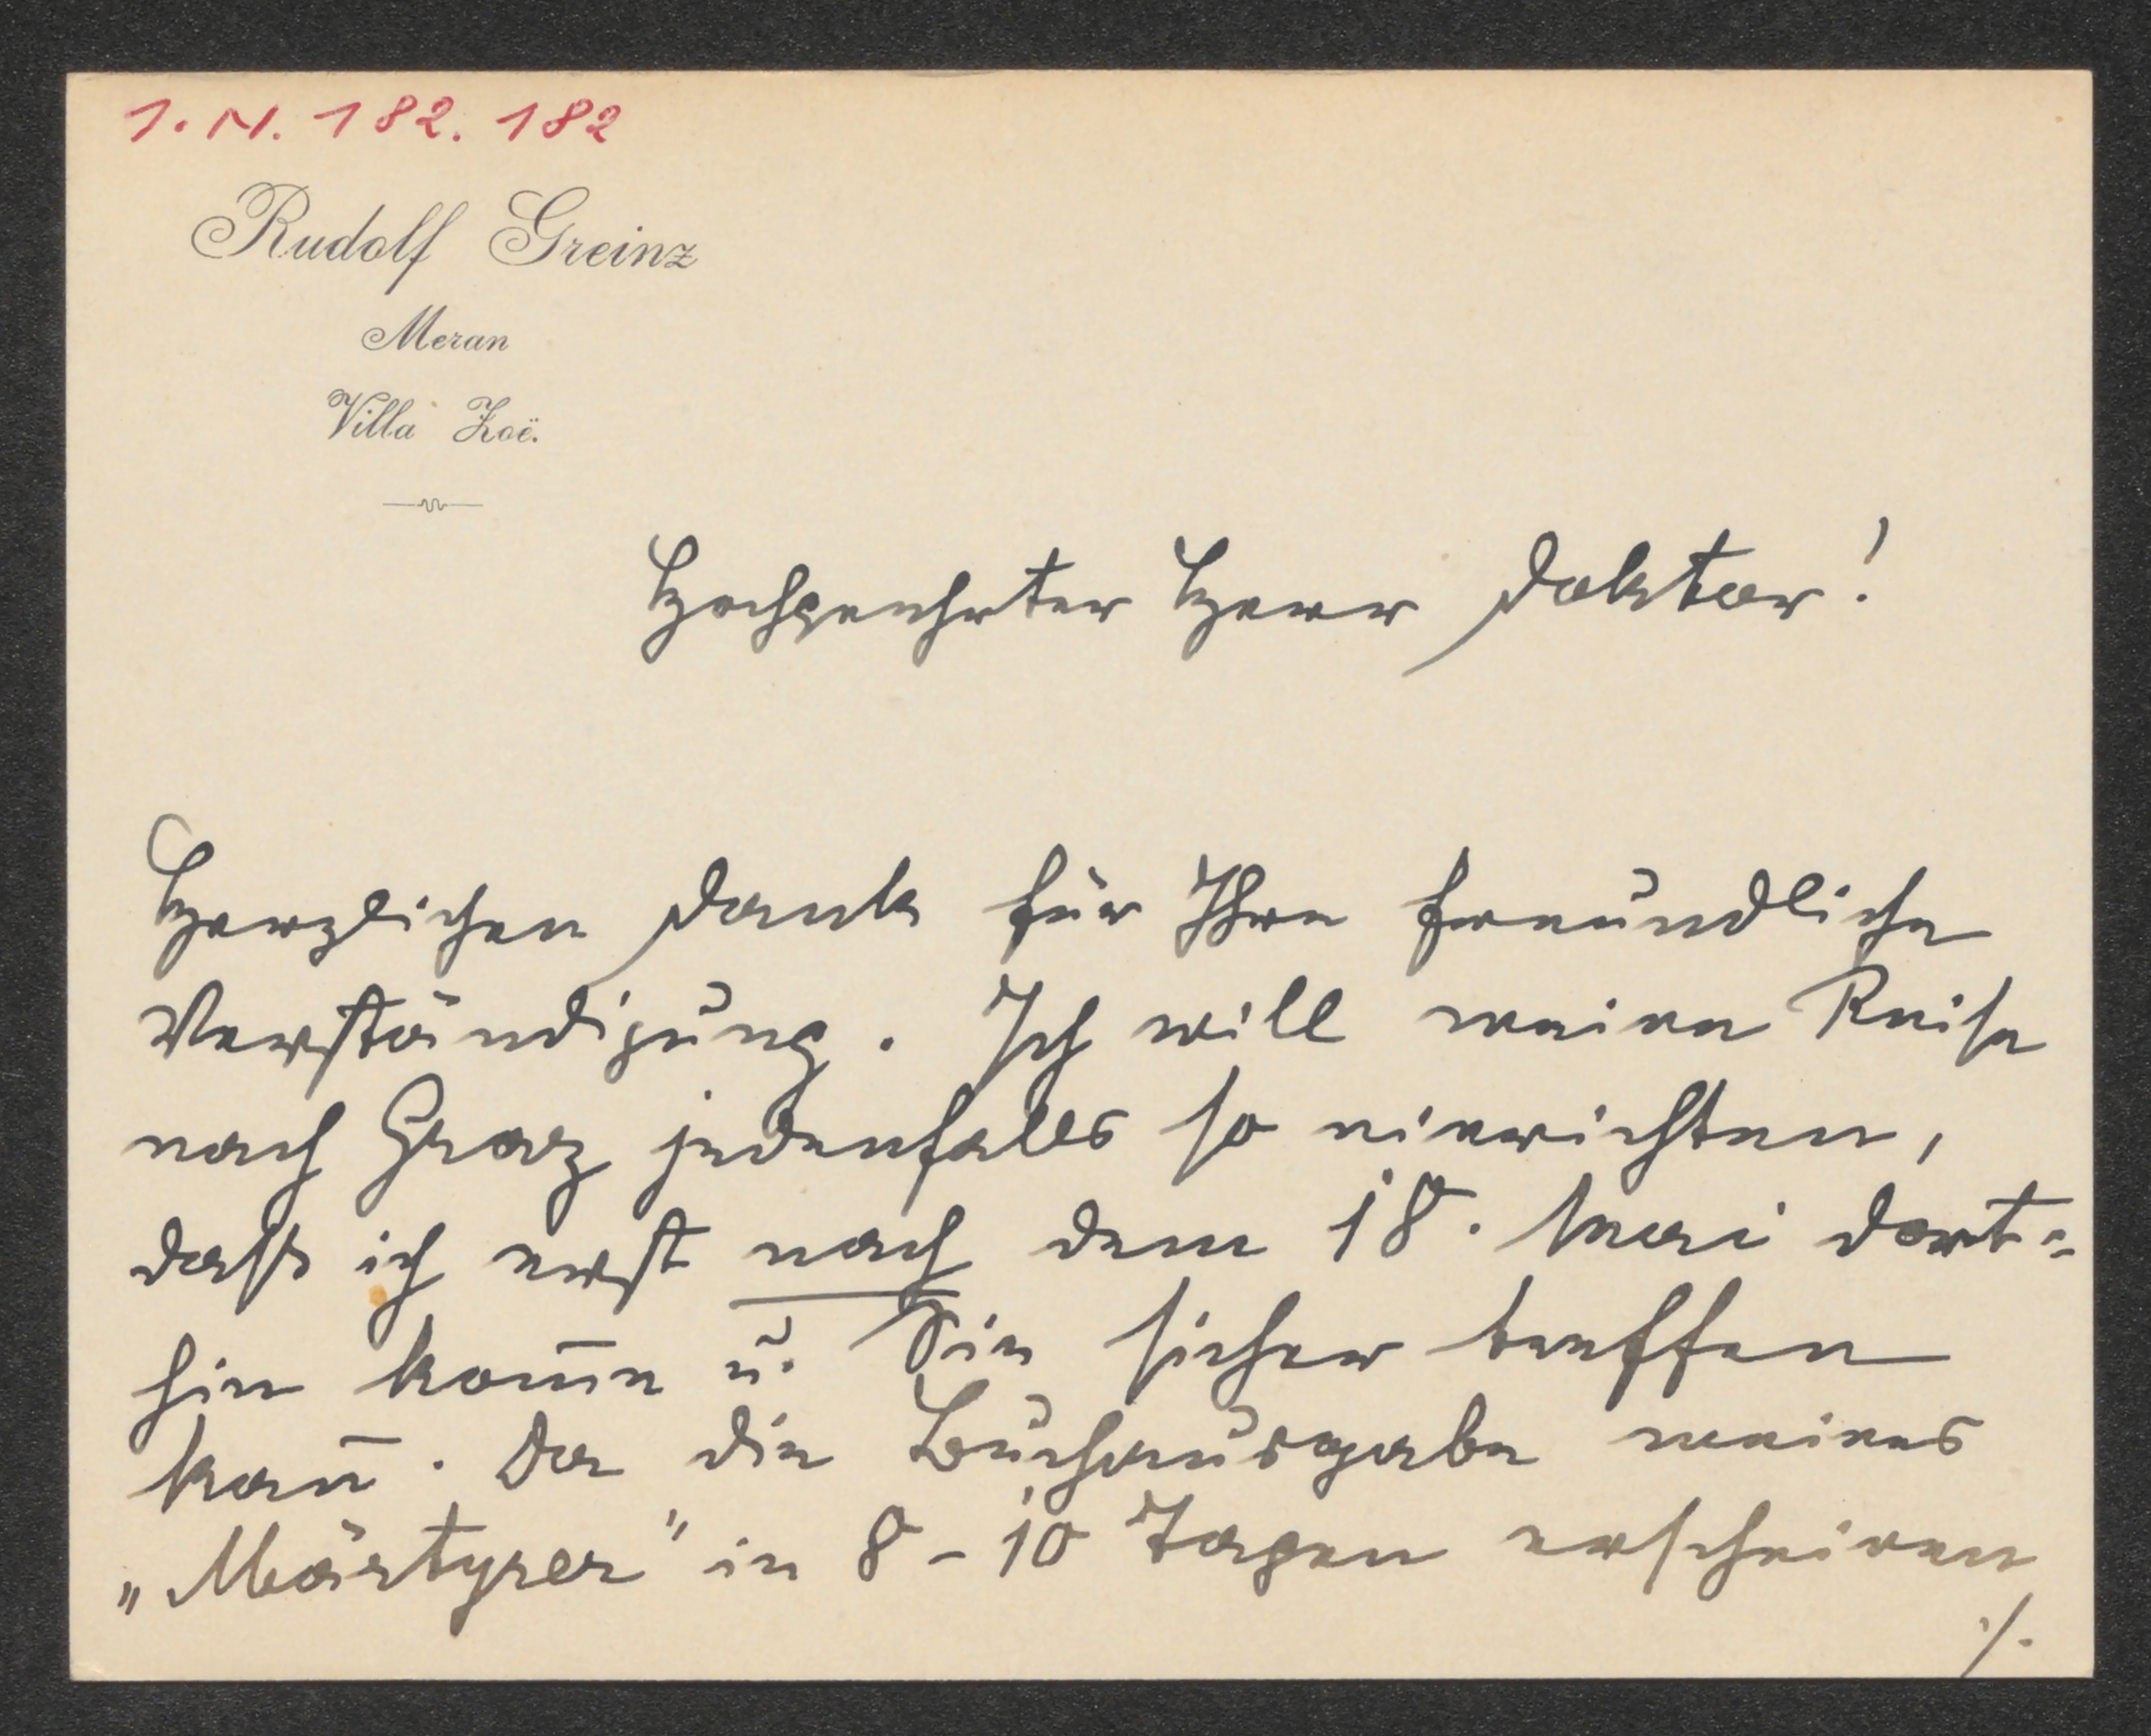 I. N. 182. 182
Rudolf Greinz
Meran
Villa Zoë.
Hochgeehrter Herr Doktor!
Herzlichen Dank für Ihre freundliche
Verständigung. Ich will meine Reise
nach Graz jedenfalls so einrichten,
daß ich erst nach dem 18. Mai dort=
hin kom̅e u. Sie sicher treffen
kan̅. Da die Buchausgabe meines
„Märtyrer" in 8 - 10 Tagen erscheinen
./.